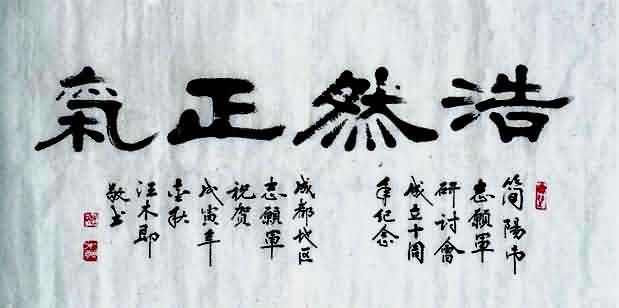 浩然正氣
简陽市
志願軍
研討會
成立十周
年纪念
成都地区
志願軍
祝贺
戊寅年
金秋
汪木即
敬书